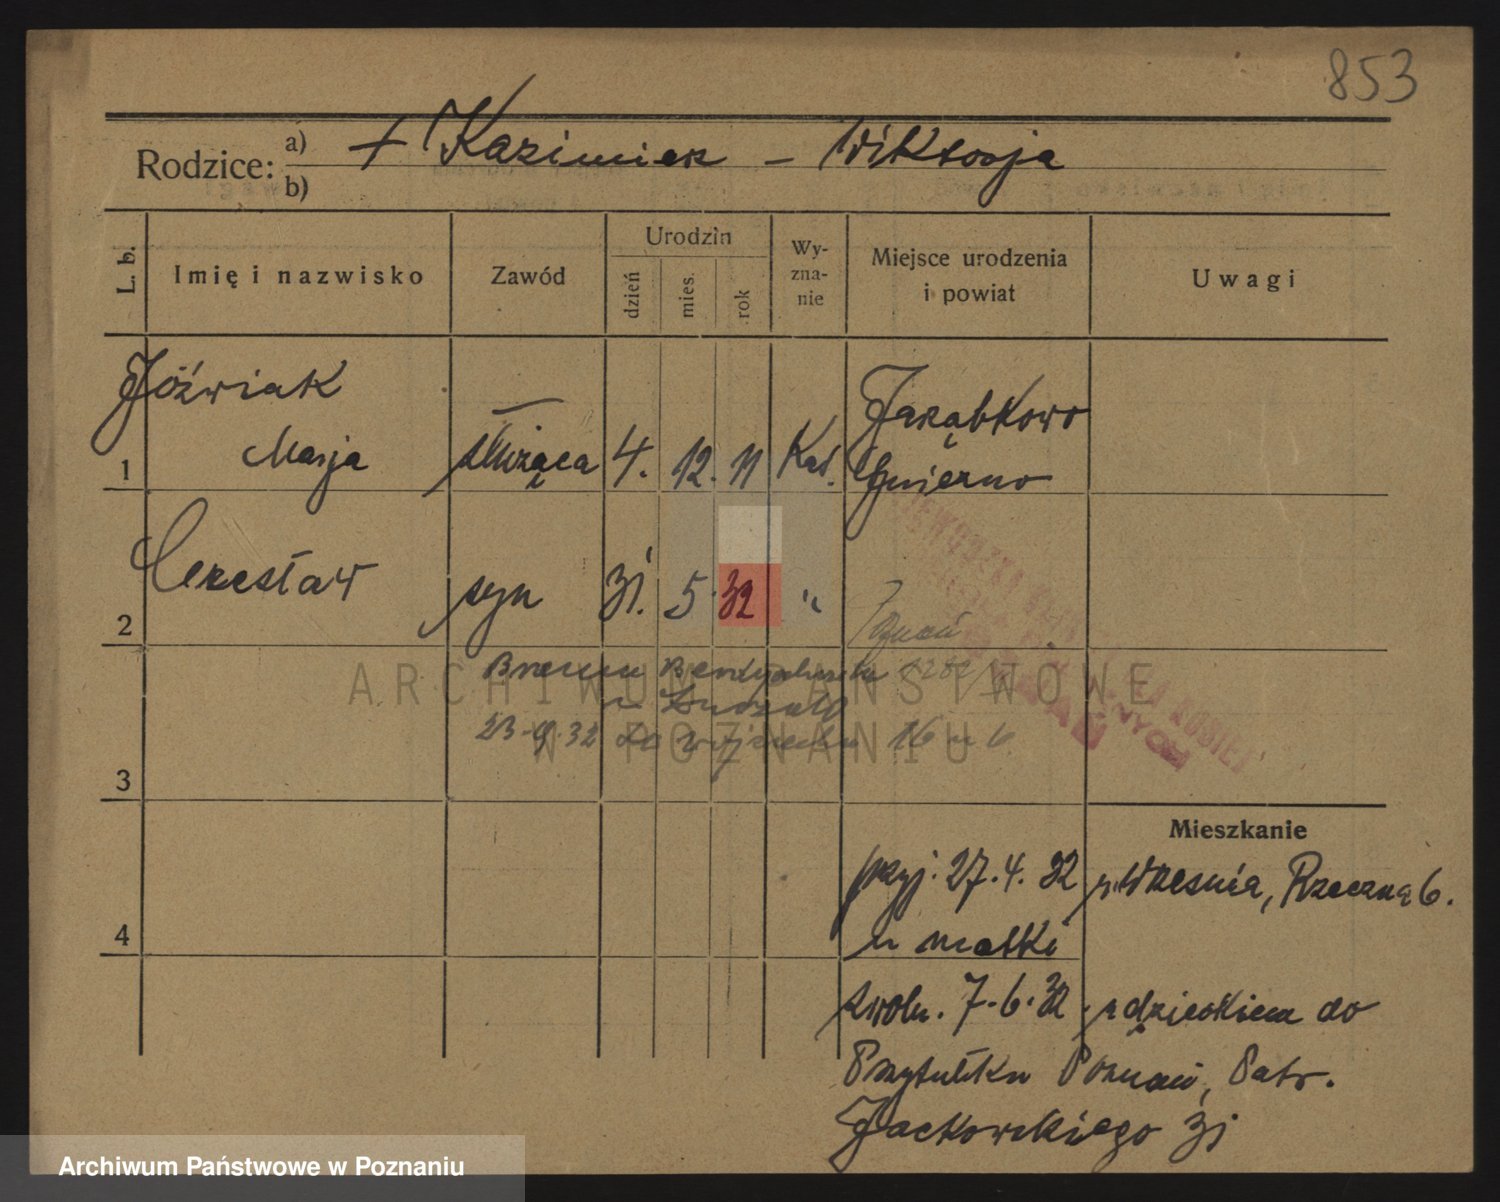 853
Rodzice: a) + Kazimierz – Wiktorja
b)
L. b. Imię i nazwisko Zawód Urodzin dzień mies. rok Wy-zna-nie Miejsce urodzenia i powiat Uwagi
Jóźwiak Jarząbkowo
1 Marja służąca 4. 12. 11 Kat. Gniezno
2 Czesław syn 31. 5. 32 " Poznań
23.9.32 do
3
Mieszkanie
przyj. 27.4.32 z Września, Rzeczna 6.
4 u matki
zwoln. 7.6.32 z dzieckiem do
Przytułku Poznań, Patr.
Jackowskiego 31
ARCHIWUM PAŃSTWOWE
W POZNANIU
Archiwum Państwowe w Poznaniu